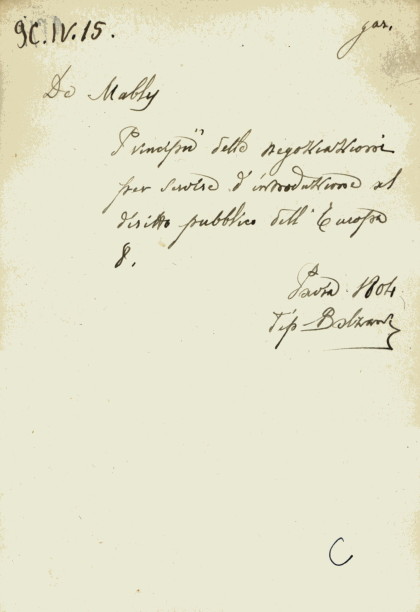 9C.IV.15.
gar.
De Mably
Principii delle negoziazioni
per servire d'introduzione al
diritto pubblico dell'Europa
8.
Pavia 1804
Tip Bolzani
C